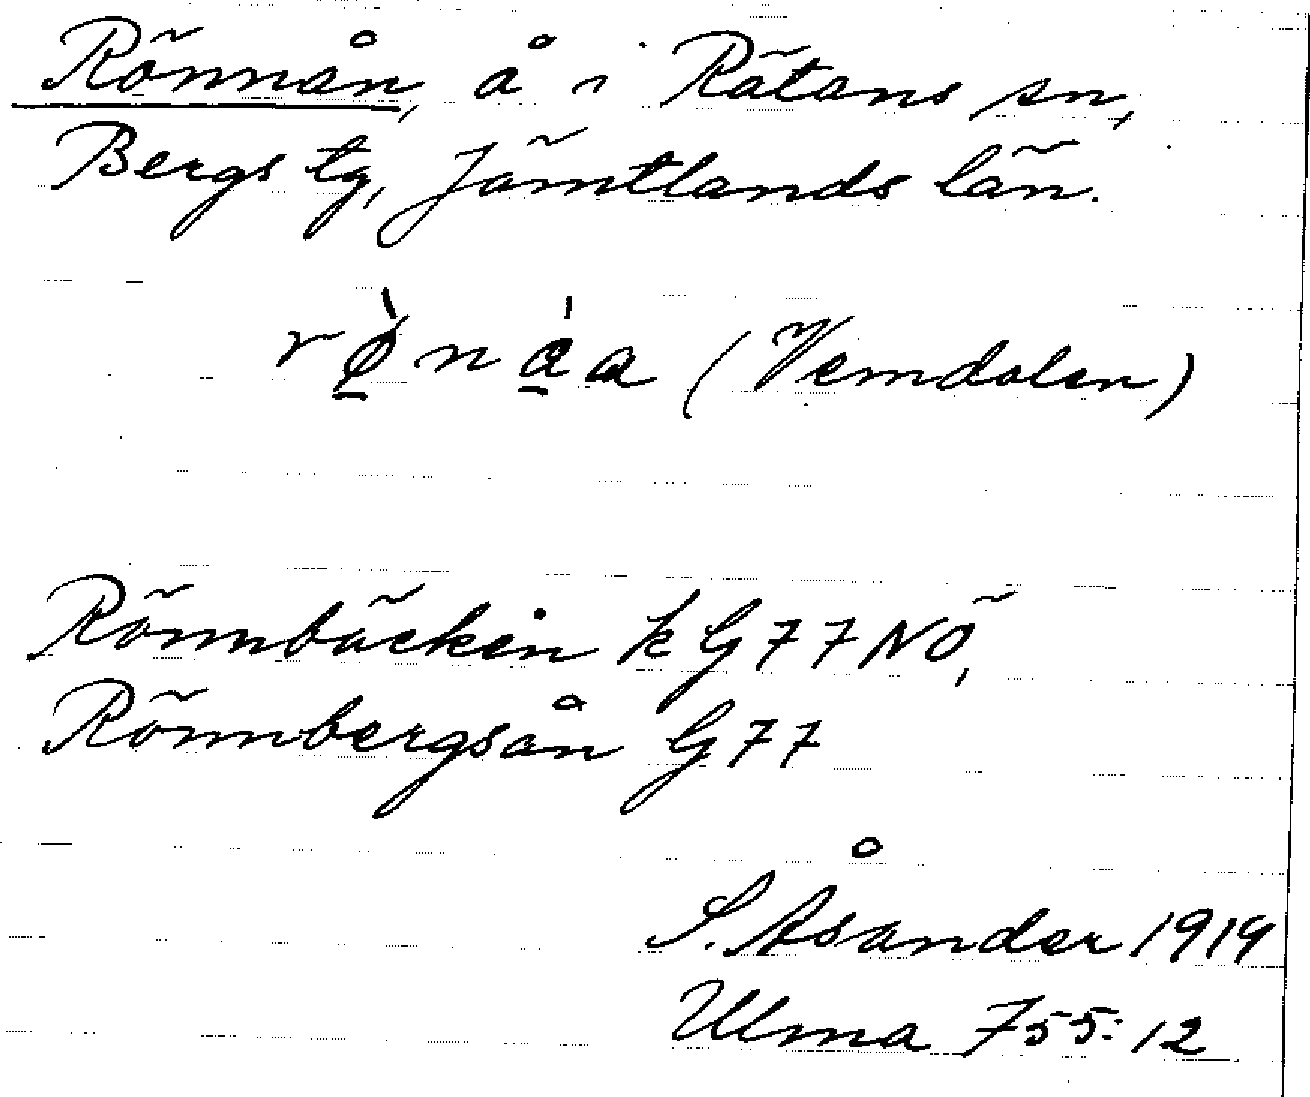 Rönnån, å i Rätans sn,
Bergs tg, Jämtlands län.
(Vemdalen)
Rönnbäcken k G77NÖ,
Rönnbergsån G77
S. Åsander 1914
Ulma 755:12